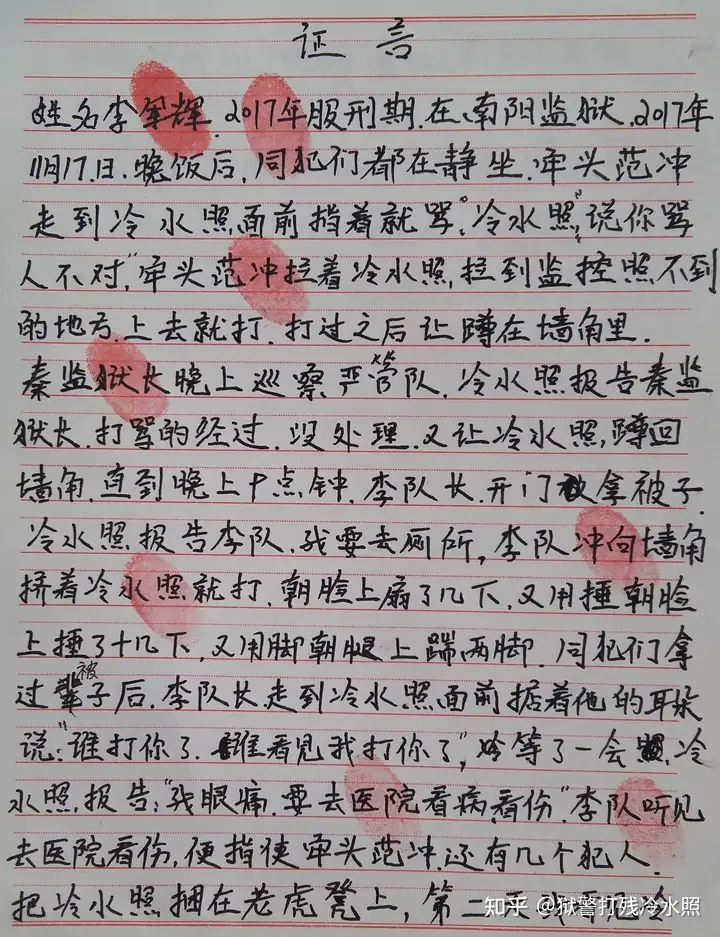 证言
姓名李军辉.2017年服刑期.在.南阳监狱.2017年
11月17.日.晚饭后,同犯们都在静坐.牢头范冲
走到冷水照面前指着就骂."冷水照"说你骂
人不对,"牢头范冲拉着冷水照,拉到监控照不到
的地方.上去就打.打过之后让蹲在墙角里.
秦监狱长晚上巡察严管队.冷水照报告秦监
狱长.打骂的经过.没处理.又让冷水照,蹲回
墙角.直到晚上十点钟.李队长.开门拿被子.
冷水照.报告李队.我要去厕所,李队冲向墙角
挤着冷水照就打.朝脸上扇了几下.又用捶朝脸
上捶了十几下,又用脚朝腿上踹两脚.同犯们拿
过被子后.李队长.走到冷水照面前掂着他的耳朵
说:"谁打你了.谁看见我打你了",等了一会.冷
水照.报告:"我眼痛.要去医院看病,看伤".李队听见
去医院看伤,便指使牢头范冲.还有几个犯人.
把冷水照捆在老虎凳上,第二天
知乎 @狱警打残冷水照